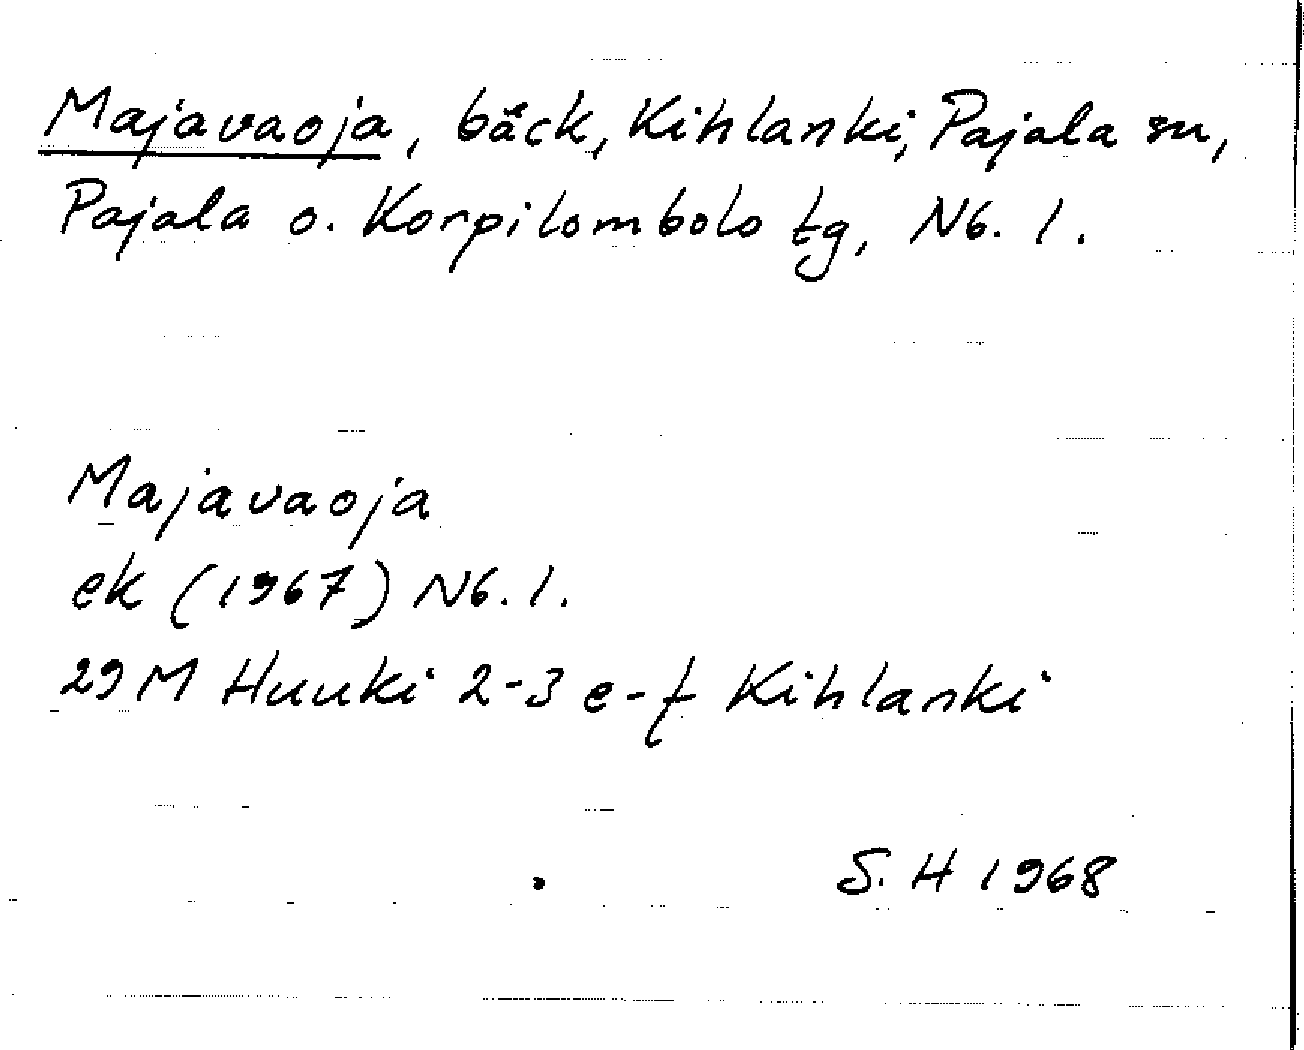 Majavaoja, bäck, Kihlanki, Pajala sn,
Pajala o. Korpilombolo tg, Nb. l.
Majavaoja
ek (1967) Nb. l.
29 M Huuki 2-3 e-f Kihlanki
S. H 1968